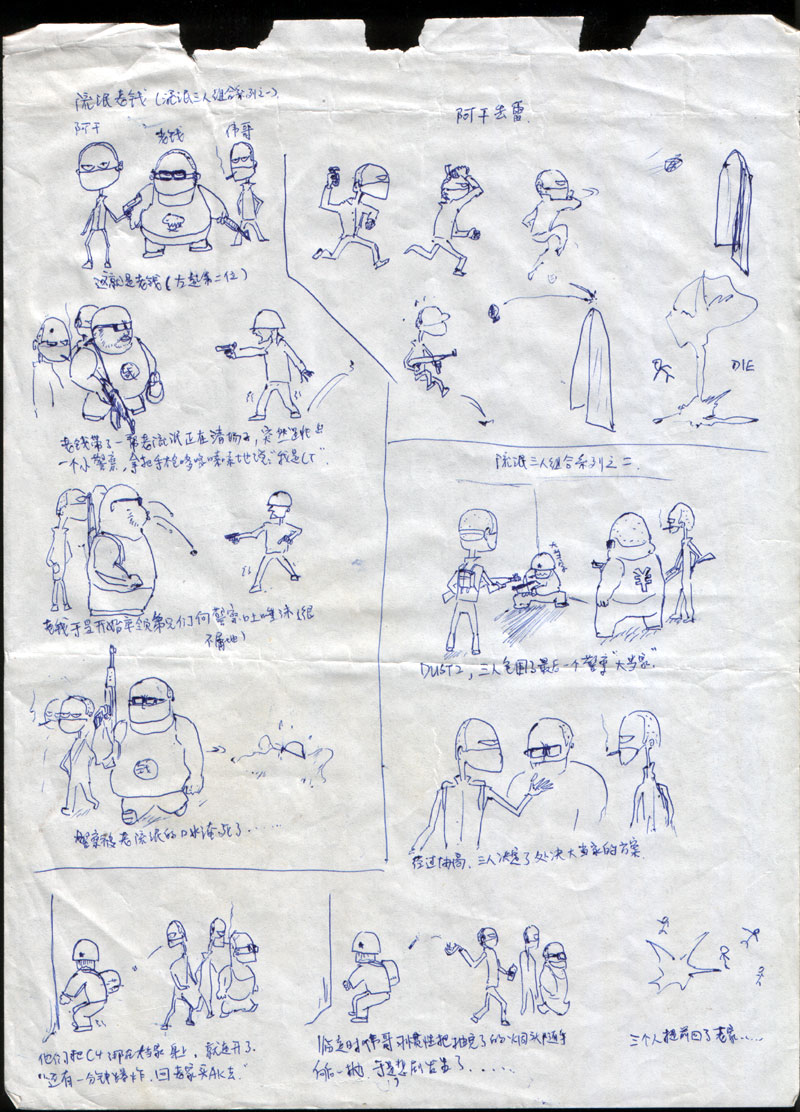 流氓老钱(流氓三人组合系列之一)
阿干
老钱
伟哥
这就是老钱(左起第二位)
钱
老钱带了一帮老流氓正在清场子,突然遇上
一个小警察,拿把手枪哆哆嗦嗦地说:"我是CT".
老钱于是开始率领弟兄们向警察吐唾沫(很
不屑地)
钱
警察被老流氓的口水淹死了......
阿干丢雷
DIE
流氓三人组合系列之二
¥
DUST2,三人包围了最后一个警察"大当家".
经过协商,三人决定了处决大当家的方案.
他们把C4绑在大当家身上,就走开了.
"还有一分钟爆炸,回老家买AK去."
临走时伟哥习惯性把抽完了的烟头随手
向后一抛,于是悲剧发生了......
三个人提前回了老家.....